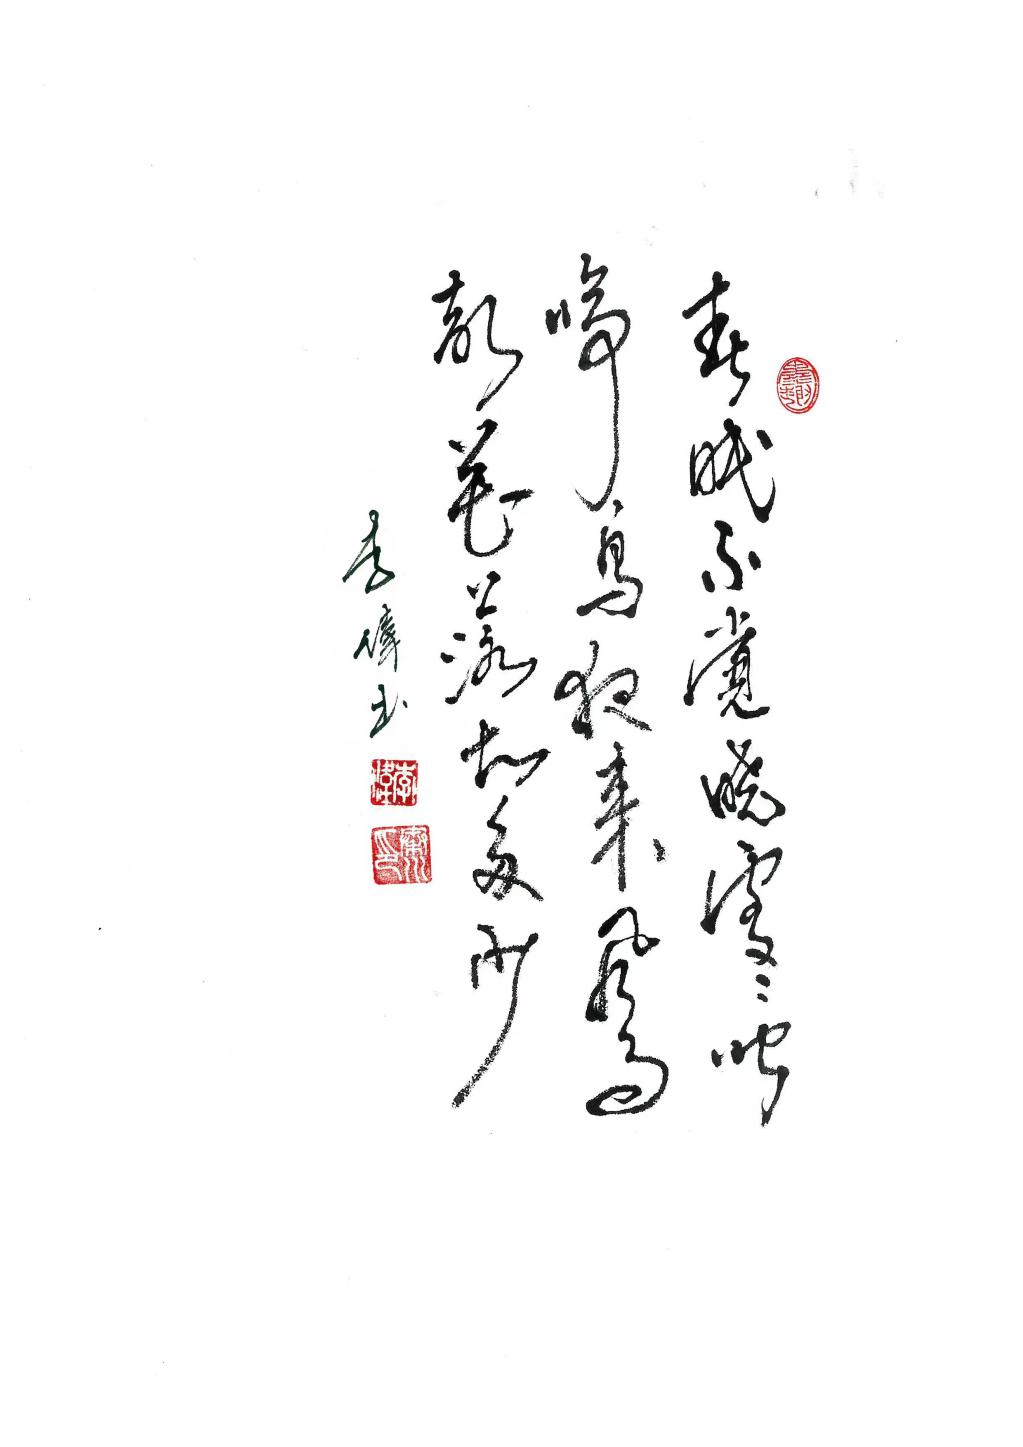 春眠不覺曉處〻聞
啼鳥夜来風雨
聲花落知多少
李偉书